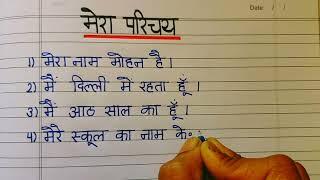 Date / /
मेरा परिचय
1) मेरा नाम मोहन है।
2) मैं दिल्ली में रहता हूँ।
3) मैं आठ साल का हूँ।
4) मेरे स्कूल का नाम के०